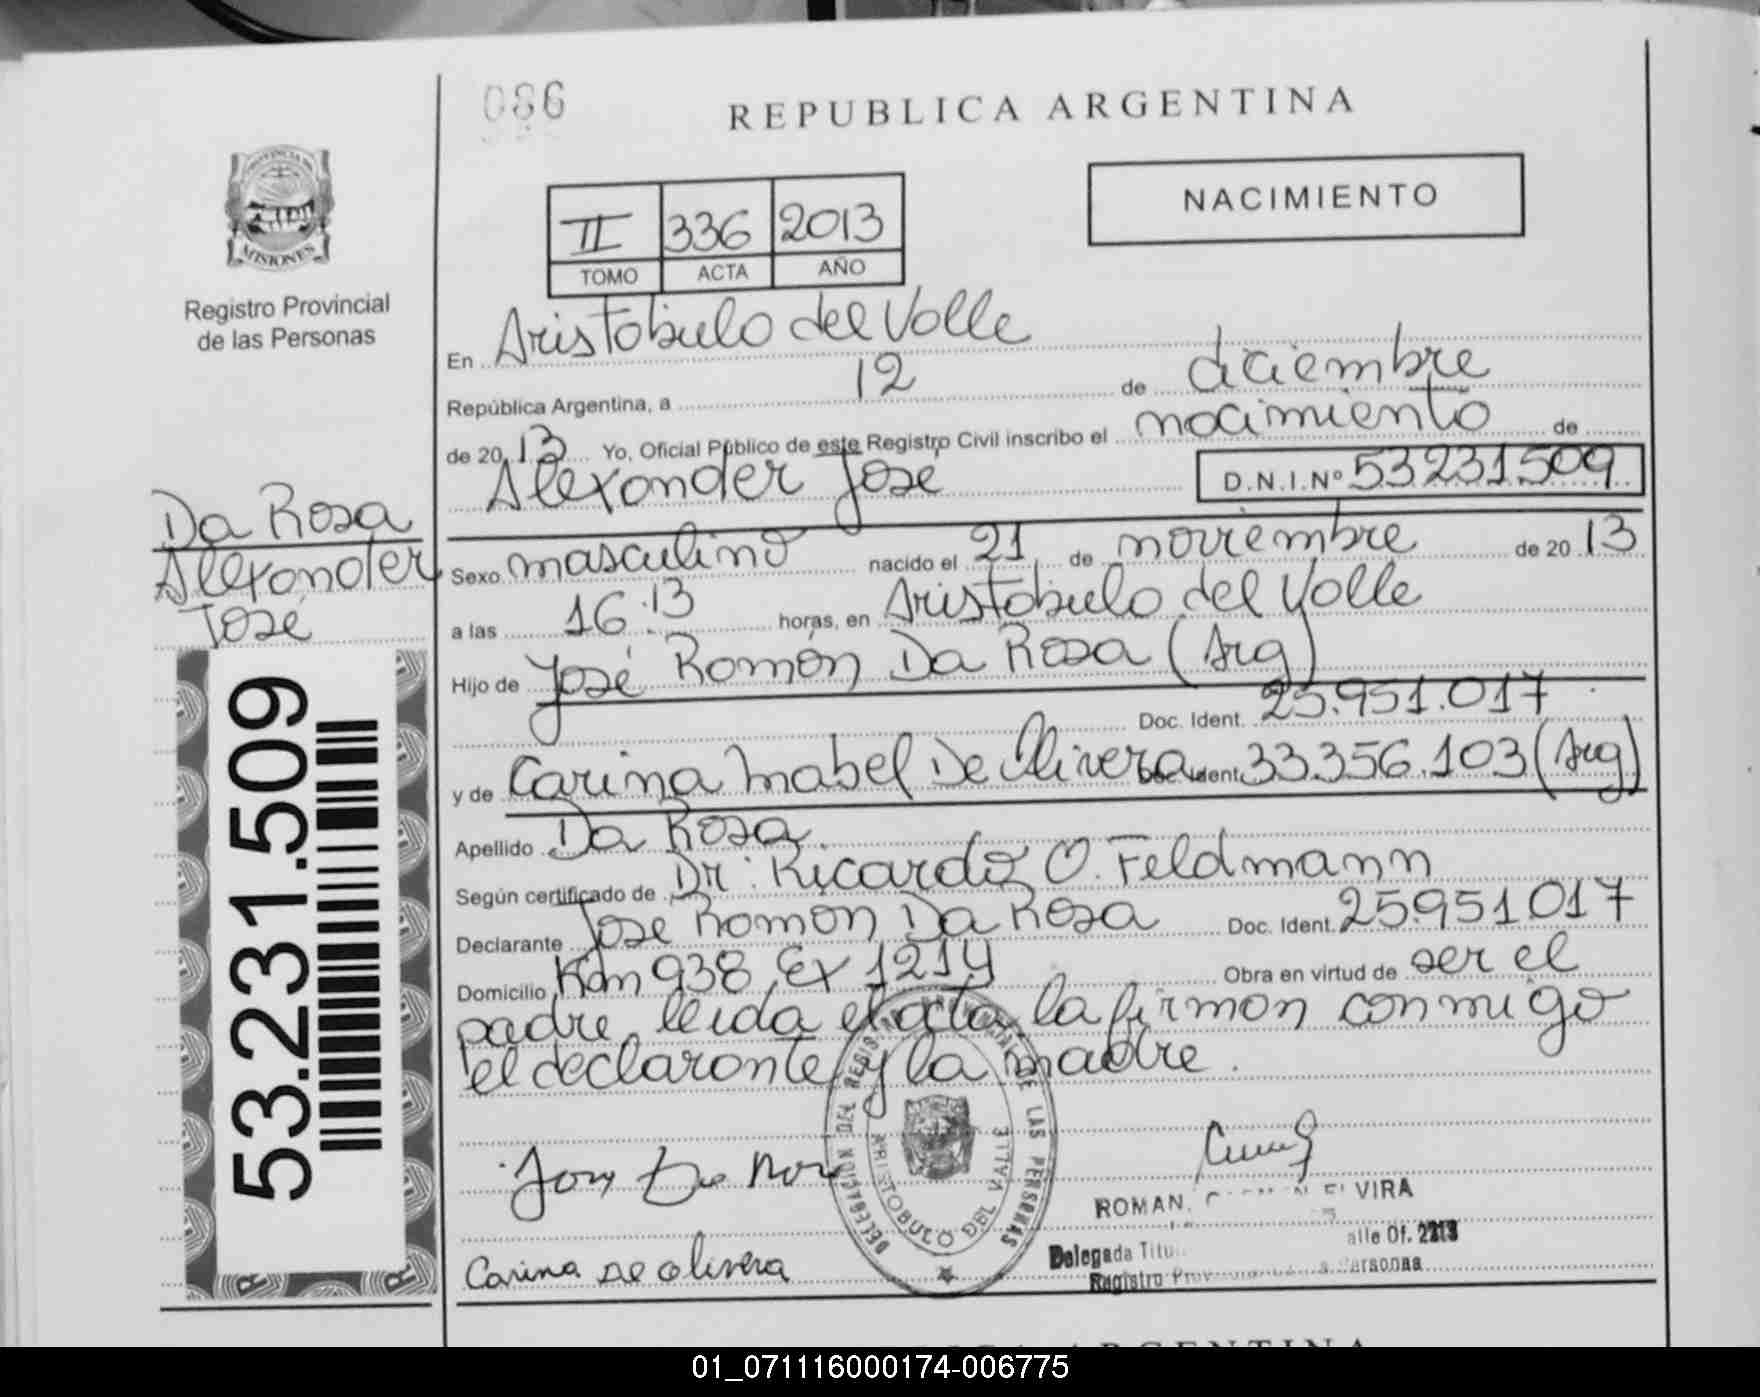 086
REPUBLICA ARGENTINA
NACIMIENTO
PROVINCIA DE
MISIONES
Registro Provincial
de las Personas
II 336 2013
TOMO ACTA AÑO
En Aristobulo del Valle
República Argentina, a 12 de diciembre
de 2013 Yo, Oficial Público de este Registro Civil inscribo el nacimiento de
Alexander José D.N.I.Nº 53231509
Da Rosa
Alexander
José
53.231.509
Sexo masculino nacido el 21 de noviembre de 2013
a las 16:13 horas, en Aristobulo del Valle
Hijo de José Román Da Rosa (Arg)
Doc. Ident. 25.951.017
y de Carina Mabel De Olivera Doc. Ident. 33.356.103 (Arg)
Apellido Da Rosa
Según certificado de Dr. Ricardo O. Feldmann
Declarante Jose Roman Da Rosa Doc. Ident. 25951017
Domicilio Km 938 Ex 1214 Obra en virtud de ser el
padre, leida el acta, la firman conmigo
el declarante y la madre.
DELEGACION DEL REGISTRO PROVINCIAL DE LAS PERSONAS
ARISTOBULO DEL VALLE
Carina De olivera
ROMAN, ELVIRA
alle Of. 2213
Delegada Titu
Registro Personas
ARGENTINA
01_071116000174-006775